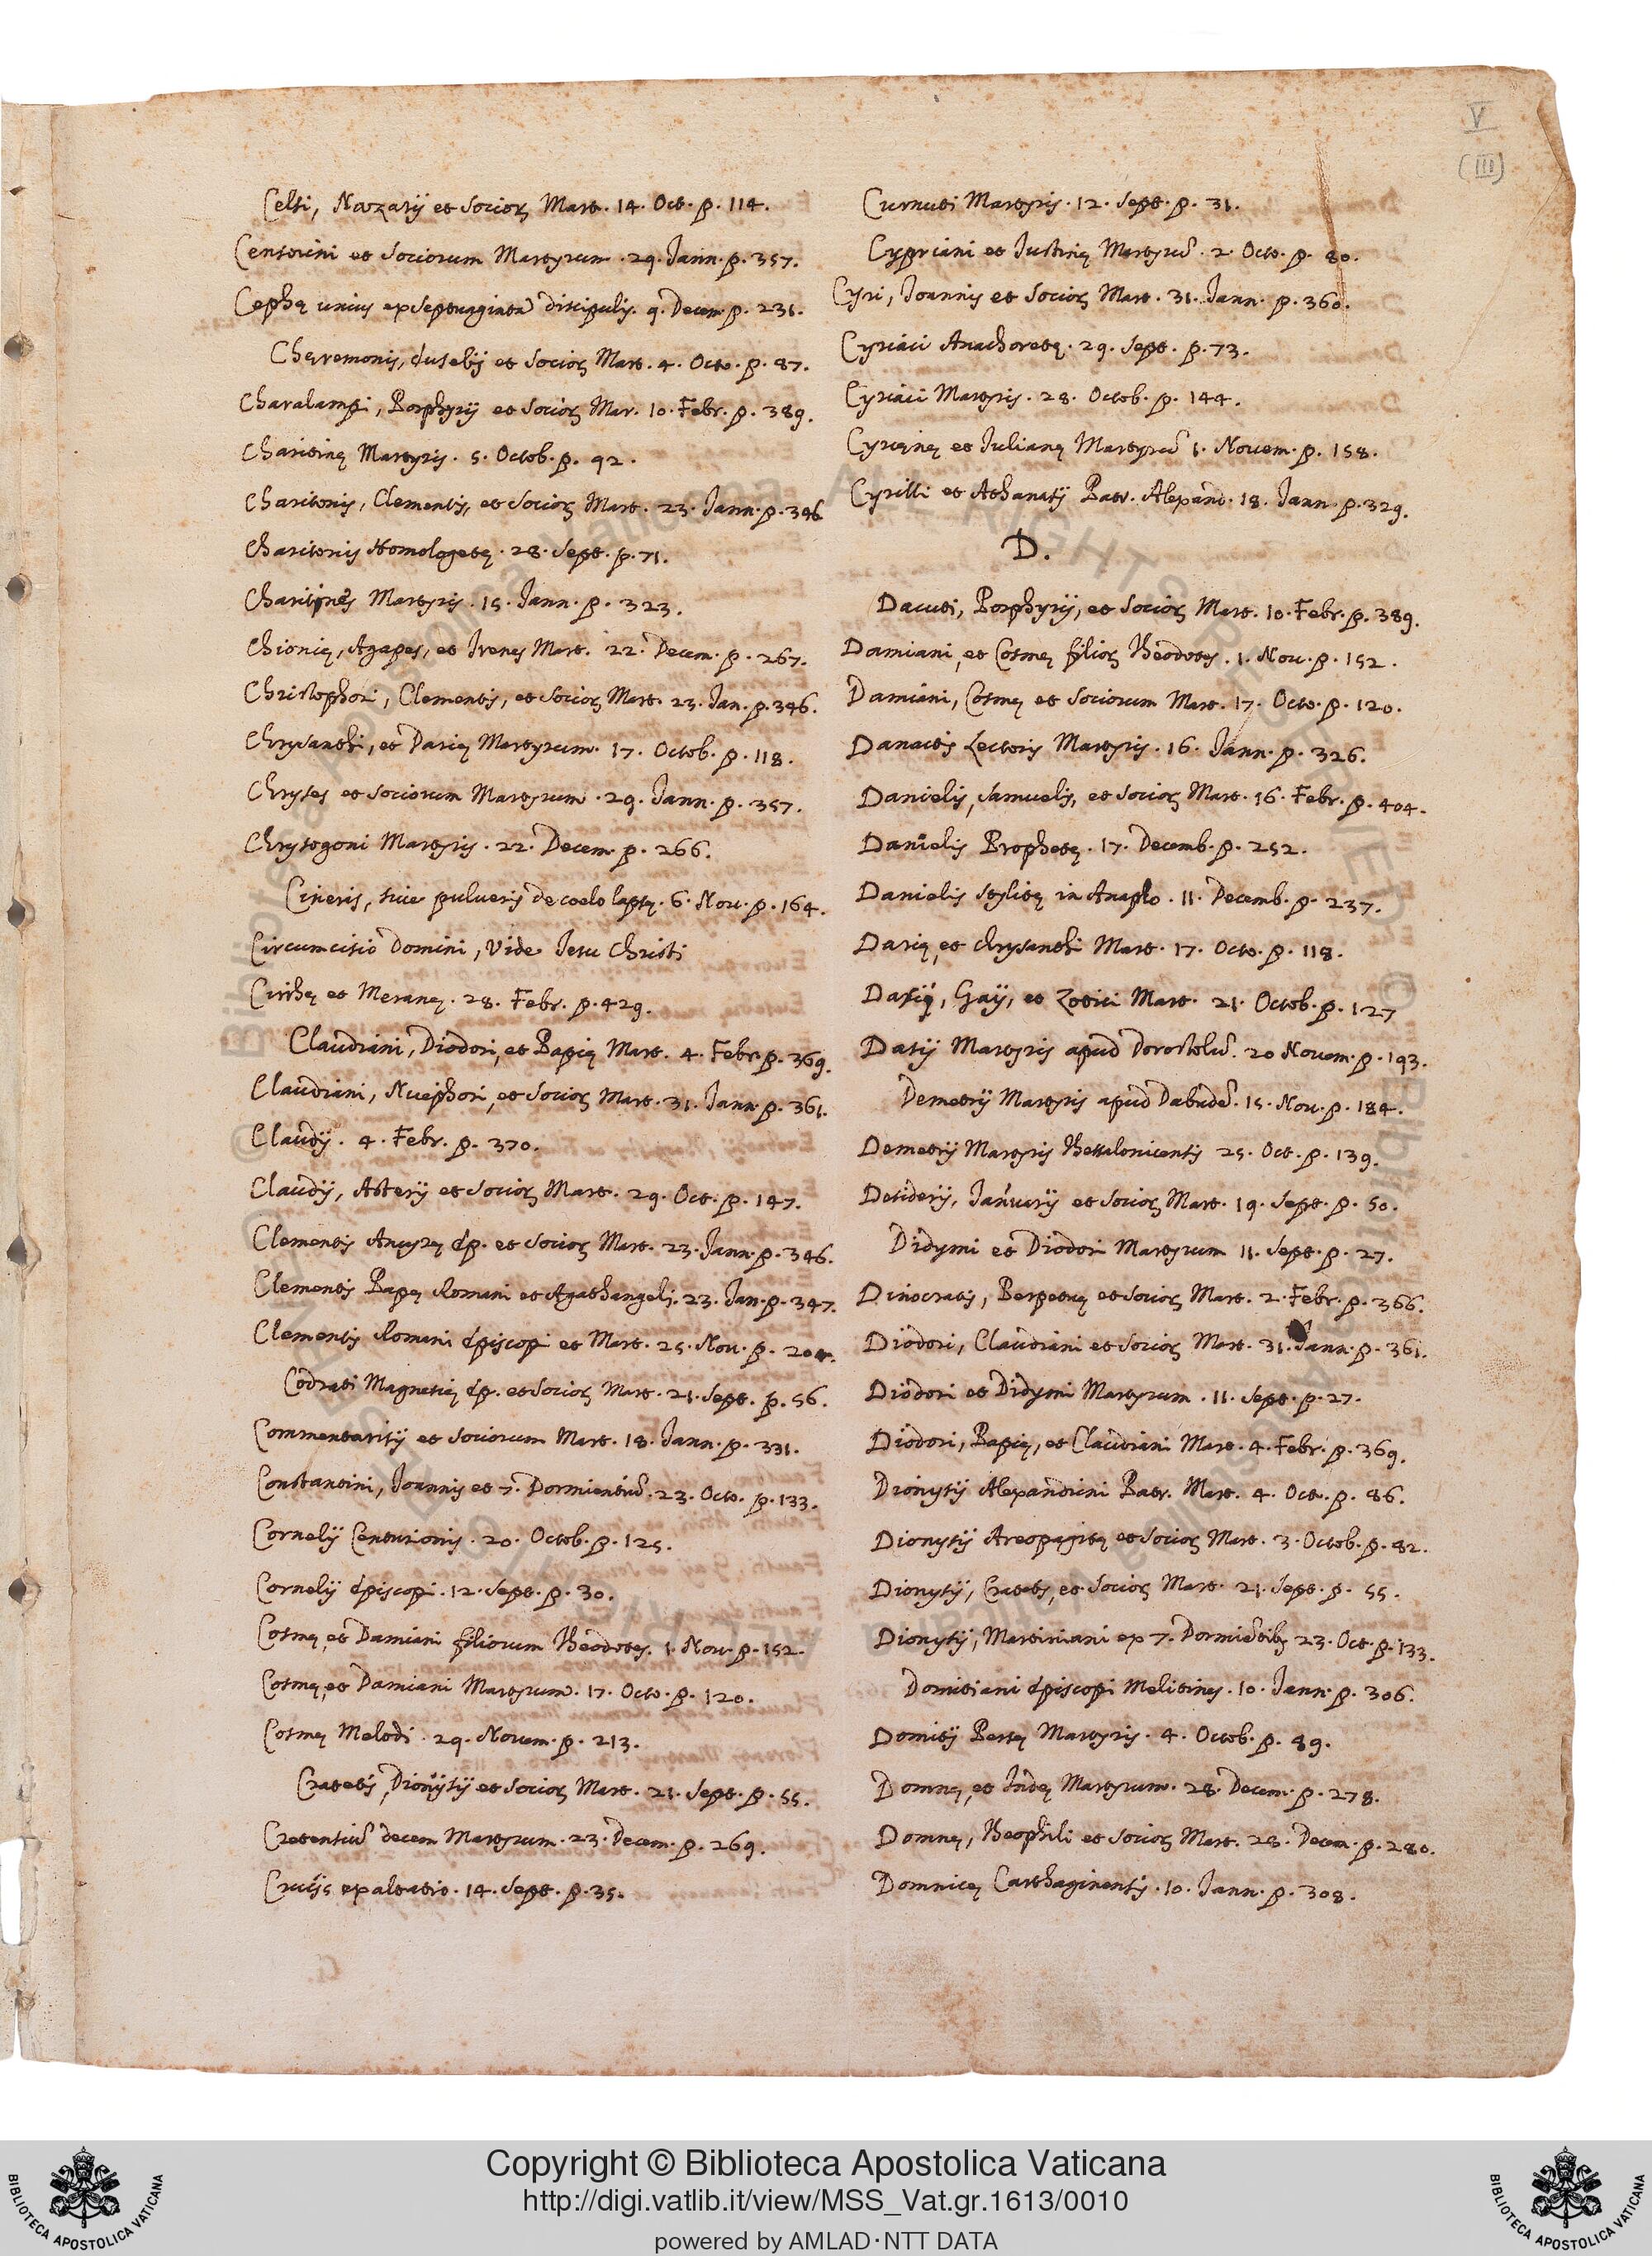 V
(III)
Celsi, Nazarij et Socioꝝ Mart. 14. Oct. p. 114.
Censorini et Sociorum Martyrum. 29. Iann. p. 357.
Cephę unius ex Septuaginta discipulis. 9. Decem. p. 231.
Chęremonis, Eusebij et Socioꝝ Mart. 4. Octo. p. 87.
Charalampi, Porphyrij et Socioꝝ Mar. 10. Febr. p. 389.
Charitinę Martyris. 5. Octob. p. 92.
Charitonis, Clementis, et Socioꝝ Mart. 23. Iann. p. 346
Charitonis Homologetę. 28. Sept. p. 71.
Martyris. 15. Iann. p. 323.
Chionię, Agapes, et Irenes Mart. 22. Decem. p. 267.
Christophori, Clementis, et Socioꝝ Mart. 23. Ian. p. 346.
Chrysanthi, et Darię Martyrum. 17. Octob. p. 118.
Chryses et Sociorum Martyrum. 29. Iann. p. 357.
Chrysogoni Martyris. 22. Decem. p. 266.
Cineris, sive pulveris de coelo lapsę. 6. Nov. p. 164.
Circumcisio Domini, vide Iesu Christi
et Meranę. 28. Febr. p. 429.
Claudiani, Diodori, et Papię Mart. 4. Febr. p. 369.
Claudiani, Nicephori, et Socioꝝ Mart. 31. Iann. p. 361.
Claudij. 4. Febr. p. 370.
Claudij, Asterij et Socioꝝ Mart. 29. Oct. p. 147.
Clementis Ancyrę Ep. et Socioꝝ Mart. 23. Iann. p. 346.
Clementis Papę Romani et Agathangeli. 23. Ian. p. 347.
Clementis Romani Episcopi et Mart. 25. Nov. p. 204.
Codrati Magnesię Ep. et Socioꝝ Mart. 21. Sept. p. 56.
Commentarisij et Sociorum Mart. 18. Iann. p. 331.
Constantini, Ioannis et 7. Dormientiũ. 23. Octo. p. 133.
Cornelij Centurionis. 20. Octob. p. 125.
Cornelij Episcopi. 12. Sept. p. 30.
Cosmę, et Damiani filiorum Theodotes. 1. Nov. p. 152.
Cosmę, et Damiani Martyrum. 17. Octo. p. 120.
Cosmę Melodi. 29. Novem. p. 213.
Cratetis, Dionysij et Socioꝝ Mart. 21. Sept. p. 55.
Cretensiũ decem Martyrum. 23. Decem. p. 269.
Crucis exaltatio. 14. Sept. p. 35.
Curnuti Martyris. 12. Sept. p. 31.
Cypriani et Iustinę Martyrũ. 2. Octo. p. 80.
Cyri, Ioannis et Socioꝝ Mart. 31. Iann. p. 360.
Cyriaci Anachoretę. 29. Sept. p. 73.
Cyriaci Martyris. 28. Octob. p. 144.
Cyręnę et Iulianę Martyrũ 1. Novem. p. 158.
Cyrilli et Athanasij Patr. Alexand. 18. Iann. p. 329.
D.
Dacuti, Porphyrij, et Socioꝝ Mart. 10. Febr. p. 389.
Damiani, et Cosmę filioꝝ Theodotes. 1. Nov. p. 152.
Damiani, Cosmę et Sociorum Mart. 17. Octo. p. 120.
Danactis Lectoris Martyris. 16. Iann. p. 326.
Danielis, Samuelis, et Socioꝝ Mart. 16. Febr. p. 404.
Danielis Prophetę. 17. Decemb. p. 252.
Danielis Stylitę in Anaplo. 11. Decemb. p. 237.
Darię, et Chrysanthi Mart. 17. Octo. p. 118.
Gaij, et Zotici Mart. 21. Octob. p. 127
Dasij Martyris apud Dorostolũ. 20 Novem. p. 193.
Demetrij Martyris apud Dabudẽ. 15. Nov. p. 184.
Demetrij Martyris Thessalonicensis 25. Oct. p. 139.
Desiderij, Ianuarij et Socioꝝ Mart. 19. Sept. p. 50.
Didymi et Diodori Martyrum 11. Sept. p. 27.
Dinocratis, Perpetuę et Socioꝝ Mart. 2. Febr. p. 366.
Diodori, Claudiani et Socioꝝ Mart. 31. Iann. p. 361.
Diodori et Didymi Martyrum. 11. Sept. p. 27.
Diodori, Papię, et Claudiani Mart. 4. Febr. p. 369.
Dionysij Alexandrini Patr. Mart. 4. Oct. p. 86.
Dionysij Areopagitę et Socioꝝ Mart. 3. Octob. p. 82.
Dionysij, Cratetis, et Socioꝝ Mart. 21. Sept. p. 55.
Dionysij, Martiniani ex 7. Dormiẽtibꝫ 23. Oct. p. 133.
Domitiani Episcopi Melitines. 10. Iann. p. 306.
Domitij Persę Martyris. 4. Octob. p. 89.
Domnę, et Indę Martyrum. 28. Decem. p. 278.
Domnę, Theophili et Socioꝝ Mart. 28. Decem. p. 280.
Domnicę Carthaginensis. 10. Iann. p. 308.
Copyright © Biblioteca Apostolica Vaticana
http://digi.vatlib.it/view/MSS_Vat.gr.1613/0010
powered by AMLAD·NTT DATA
BIBLIOTECA APOSTOLICA VATICANA
BIBLIOTECA APOSTOLICA VATICANA